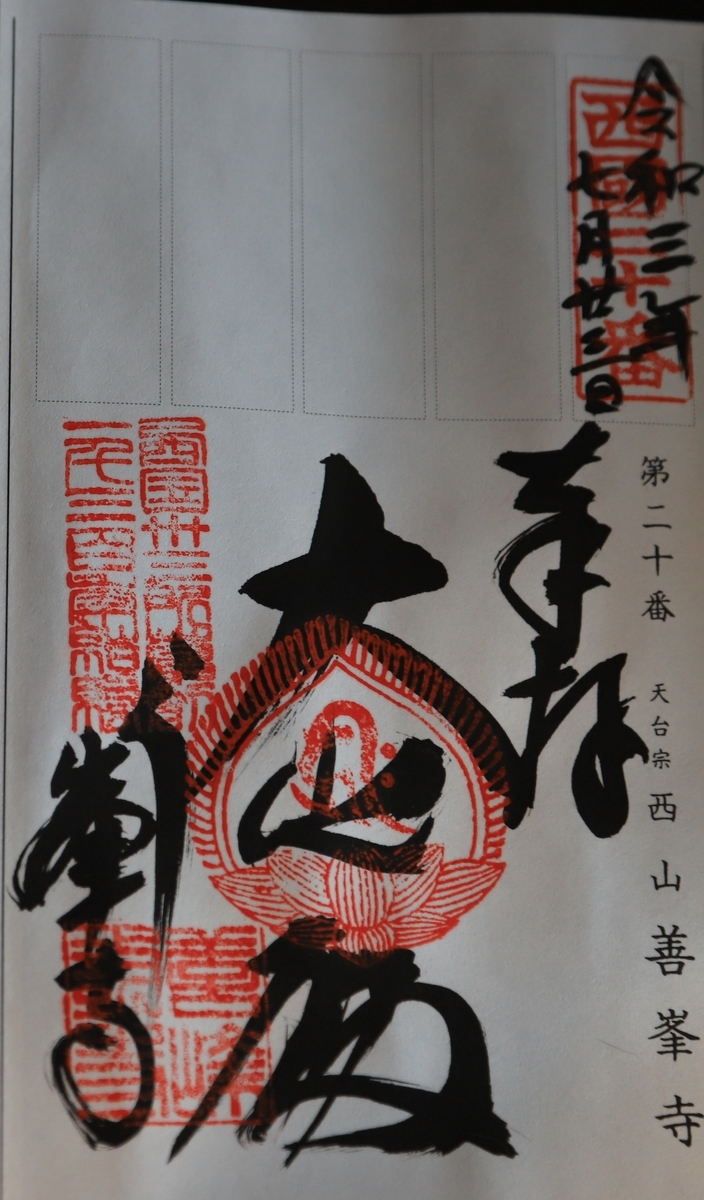 第二十番 天台宗 西山善峯寺
令和三年
七月廿三日
西國二十番
奉拝
大
峯寺
西国卅三所
一千三百年